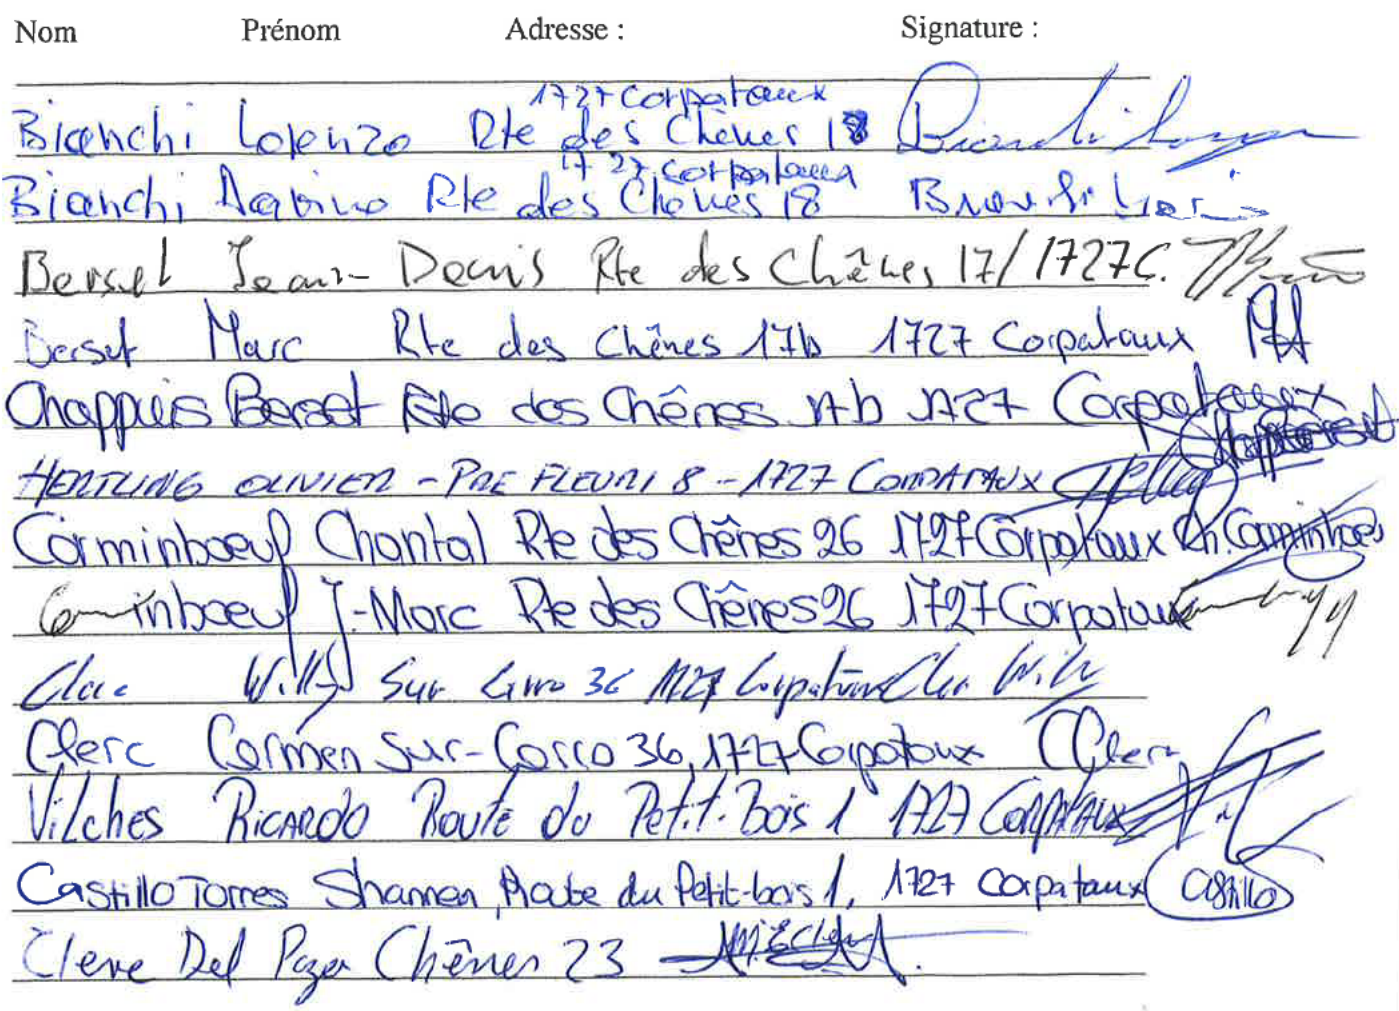 Nom Prénom Adresse : Signature :
1727 Corpataux
Bianchi Lorenzo Rte des Chênes 18
1727 Corpataux
Bianchi Rte des Chênes 18
Berset Jean-Denis Rte des Chênes 17/1727 C.
Berset Marc Rte des Chênes 17b 1727 Corpataux
Chappuis Berset Rte des Chênes 17b 1727 Corpataux
HERTLING OLIVIER - PRE FLEURI 8 - 1727 CORPATAUX
Corminboeuf Chantal Rte des Chênes 26 1727 Corpataux Ch. Corminboeuf
Corminboeuf J-Marc Rte des Chênes 26 1727 Corpataux
Clerc Willy Sur 36 1727 Corpataux Clerc Willy
Clerc Carmen Sur-Corro 36, 1727 Corpataux CClerc
Vilches RICARDO Route du Petit-Bois 1 1727 CORPATAUX
Castillo Torres Shamen, Route du Petit-bois 1, 1727 Corpataux Castillo
Cleve Del Chênes 23